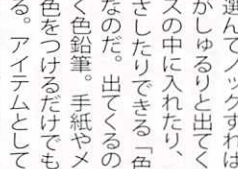 選んでノックすれば
がしゅるりと出てく
スの中に入れたり、
さしたりできる「色
なのだ。出てくるの
く色鉛筆。手紙やメ
色をつけるだけでも
る。アイテムとして